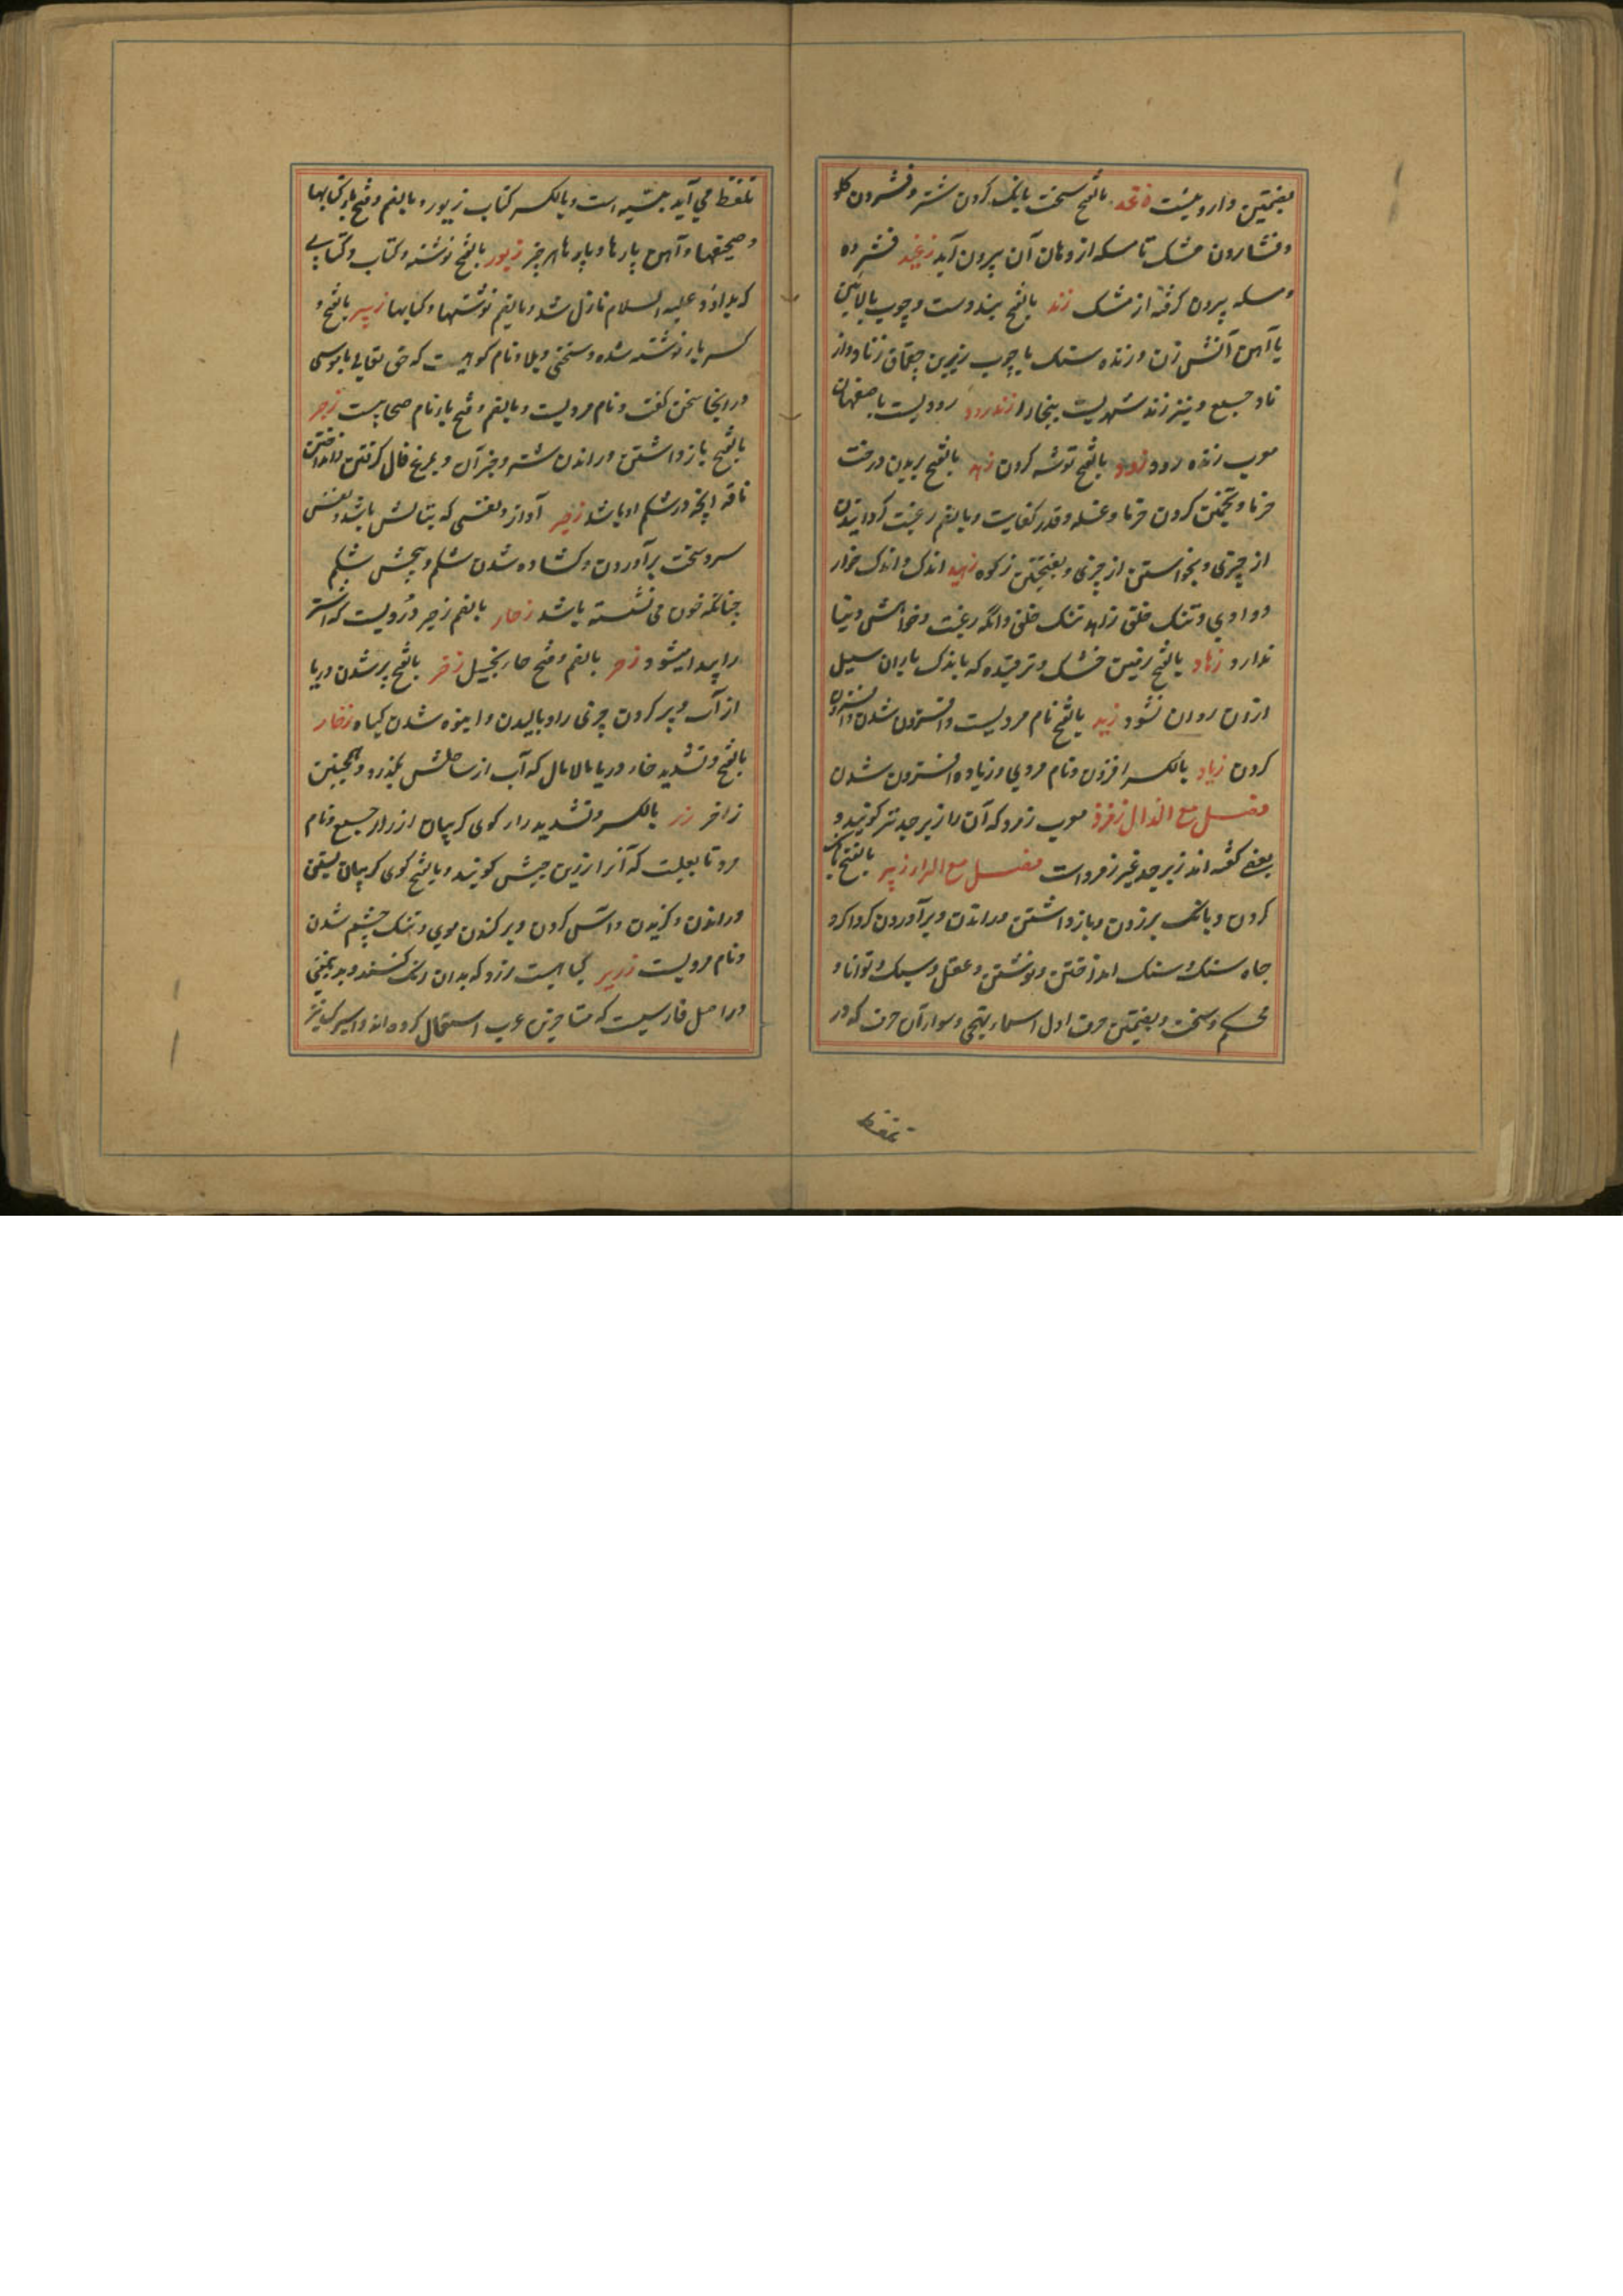 بضمتین داروییست زغد بالفتح سخت بانک کردن شتر و فشردن کلو
و فشاردن مشک تا مسکه از دهان آن بیرون آید زغید فشرده
و مسکه بیرون کرفته از مشک زند بالفتح بند دست و چوب بالائین
یا آهن آتش زن و زنده سنک یا چوب زیرین چقماق زناد و از
ناد جمیع و نیز زند شهریست ببخارا زندرود رودیست باصفهان
معرب زنده رود زود بالفتح توشه کردن زهد بالفتح بریدن درخت
خرما و تخمین کردن خرما و غله و قدر کفایت و بالضم رغبت کردانیدن
از چیزی و نخواستن از چیزی و بفتحتین زکوه زهید اندک و اندک خوار
و وادی و تنک خلق زاهد تنک خلق و انکه رغبت و خواهش دنیا
ندارد زهاد بالفتح زمین خشک و ترقیده که باندک باران سیل
ازان روان نشود زید بالفتح نام مردیست و افزون شدن و افزون
کردن زیاد بالکسر افزون و نام مردی و زیاده افزون شدن
فصل مع الذال زمرذ معرب زمرد که آن را زبرجد نیز کویند و
بعضی کفته اند زبرجد غیر زمرد است فصل مع الراء زبر بالفتح بانک
کردن و بانک بر زدن و باز داشتن و راندن و برآوردن کرداکرد
چاه سنک و سنک انداختن و نوشتن و عقل و سبک و توانا و
محکم و سخت و بضمتین حرف اول اسماء تهجی و سوار آن حرف که در
تلفظ
تلفظ می آید بینیه است و بالکسر کتاب زبور و بالضم و فتح باء کتابها
و صحیفها و آهن پارها و پارهاهر چیز زبور بالفتح نوشته و کتاب و کتابی
که بداؤد علیه السلام نازل شد و بالضم نوشتها و کتابها زبیر بالفتح و
کسر باء نوشته شده و سختی و بلا و نام کوهیست که حق تعالی با موسی
درانجا سخن کفت و نام مردیست و بالضم و فتح باء نام صحابیست زجر
بالفتح باز داشتن و راندن شتر و جز آن و بمرغ فال کرفتن و انداختن
ناقه انچه در شکم او باشد زحیر آواز و نفسی که بنالش باشد و نفس
سرد سخت برآوردن و کشاده شدن شکم و پیچش شکم
چنانکه خون می نشسته باشد زحار بالضم زحیر و دردیست که اشتر
را پیدا میشود زحر بالضم و فتح حاء بخیل زخر بالفتح پر شدن دریا
از آب و پر کردن چیزی را و بالیدن و انبوه شدن کیاه زخار
بالفتح و تشدید خاء دریا مالامال که آب از ساحلش بگذرد و همچنین
زاخر زر بالکسر و تشدید راء کوی کریبان ازرار جمیع و نام
مرد تابعیست که آنرا زر بن حبیش کویند و بالفتح کوی کریبان بستن
و راندن و کزیدن و آس کردن و برکندن موی و تنک چشم شدن
و نام مردیست زریر کیاهیست زرد که بدان رنک کنند و بدین معنی
در اصل فارسیست که متاخرین عرب استعمال کرده اند و اسیرک نیز